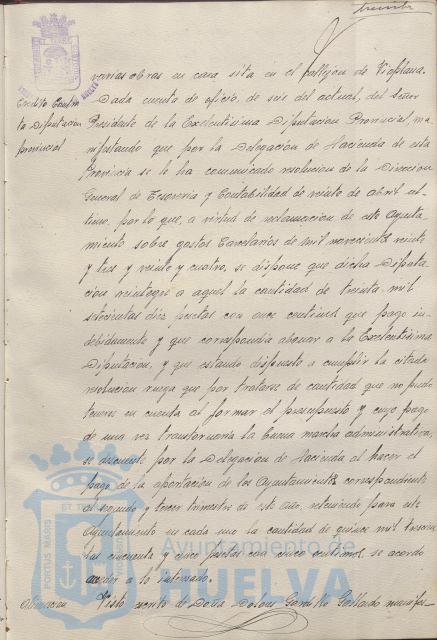 treinta
varias obras en casa sita en el callejón de Viaplana.
Crédito contra la Diputación provincial
Dada cuenta de oficio, de seis del actual, del Señor
Presidente de la Excelentísima Diputación Provincial, ma-
nifestando que por la Delegación de Hacienda de esta
Provincia se le ha comunicado resolución de la Dirección
General de Tesorería y Contabilidad de veinte de abril úl-
timo, por lo que, a virtud de reclamación de este Ayunta-
miento sobre gastos Carcelarios de mil novecientos veinte
y tres y veinte y cuatro, se dispone que dicha Diputa-
ción reintegre a aquel la cantidad de treinta mil
setecientas diez pesetas con once céntimos que pagó in-
debidamente y que correspondía abonar a la Excelentísima
Diputación, y que estando dispuesto a cumplir la citada
resolución ruega que por tratarse de cantidad que no pudo
tenerse en cuenta al formar el presupuesto y cuyo pago
de una vez transtornaría la buena marcha administrativa,
se descuente por la Delegación de Hacienda al hacer el
pago de la aportación de los Ayuntamientos correspondiente
al segundo y tercer trimestre de este año, reteniendo para este
Ayuntamiento en cada una la cantidad de quince mil trescien-
tas cincuenta y cinco pesetas con cinco céntimos, se acordó
acceder a lo interesado.
Visto escrito de Doña Dolores Gallardo manifes-
PORTUS MARIS
Ayuntamiento de
HUELVA